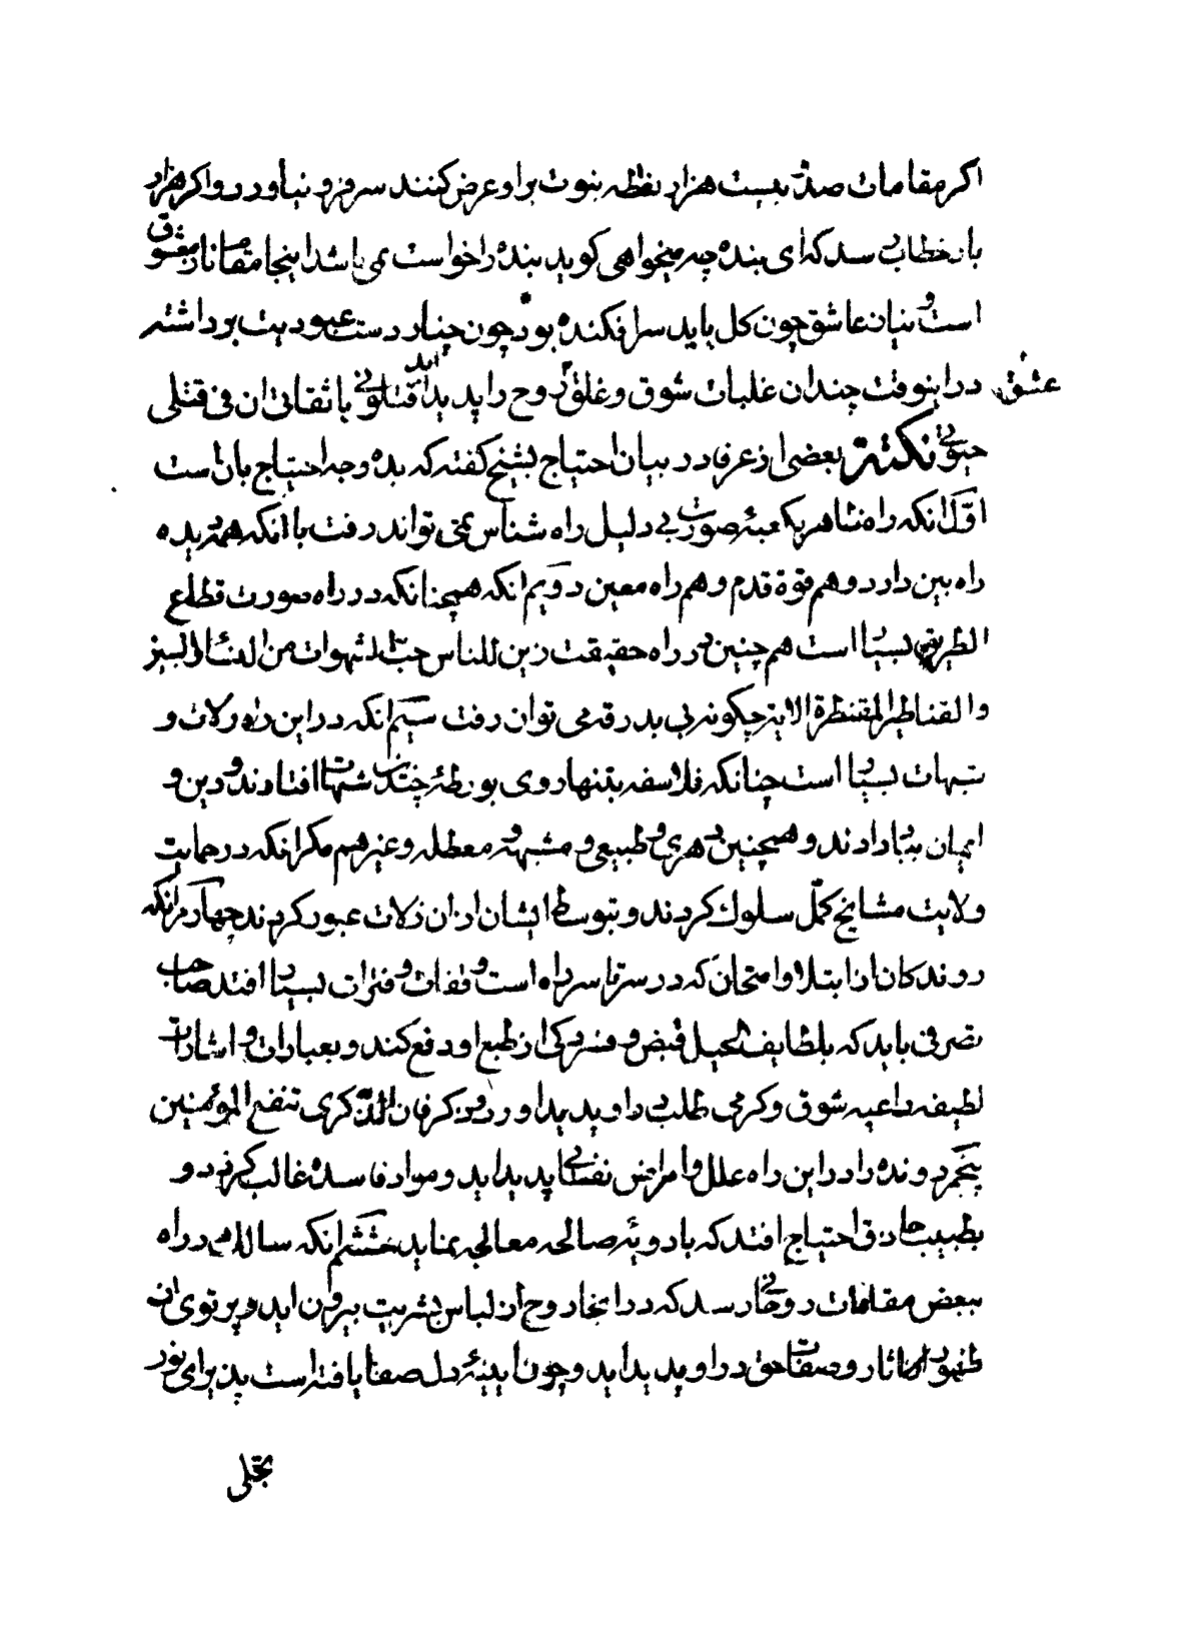 اکر مقامات صد و بیست هزار نقطه نبوت بر او عرض کنند سر فرو نیاورد و اکر هزار
بار خطاب رسد که ای بنده چه میخواهی کوید بنده را خواست نمی باشد اینجا مقام ناز معشوق
است و نیاز عاشق چون کل باید سر افکنده بود چون چنار دست عبودیت برداشته
عشق در اینوقت چندان غلبات شوق و غلق روح را پدید اید اقتلونی یا ثقاتی ان فی قتلی
حیوتی نکته بعضی از عرفا در بیان احتیاج بشیخ کفته که بده وجه احتیاج بان است
اول انکه راه ظاهر بکعبهٔ صورت بی دلیل راه شناس نمی تواند رفت با انکه هم دیده
راه بین دارد و هم قوة قدم و هم راه معین دویم انکه همچنانکه در راه صورت قطاع
الطریق بسیار است هم چنین در راه حقیقت زین للناس حب الشهوات من النساء و البنین
والقناطیر المقنطرة الایة چکونه بی بدرقه می توان رفت سیم انکه در این راه زلات و
شبهات بسیار است چنانکه فلاسفه بتنها روی بورطهٔ چندان شبهات افتادند و دین و
ایمان بباد دادند و همچنین دهری و طبیعی و مشبهه و معطله و غیرهم مکر انکه در حمایت
ولایت مشایخ کمّل سلوک کردند و بتوسط ایشان از ان زلات عبور کردند چهارم انکه
روندکان را ابتلا و امتحان که در سرتاسر راه است وقفات و فترات بسیار افتد صاحب
تصرفی باید که بلطایف الحیل قبض و فسردکی از طبع او دفع کند و بعبارات و اشارات
لطیفه داعیه شوق و کرمی طلب در او پدید اورد و ذکر فان الذکری تنفع المؤمنین
پنجم رونده را در این راه علل و امراض نفسانی پدید اید و مواد فاسده غالب کردد و
بطبیب حاذق احتیاج افتد که بادویهٔ صالحه معالجه نماید ششم انکه سالک در راه
ببعض مقامات روحانی رسد که در انجا روح از لباس بشریت بیرون اید و پرتوی از
ظهور اثار و صفات حق در او پدید اید و چون اینهٔ دل صفا یافته است پذیرای نور
تجلی